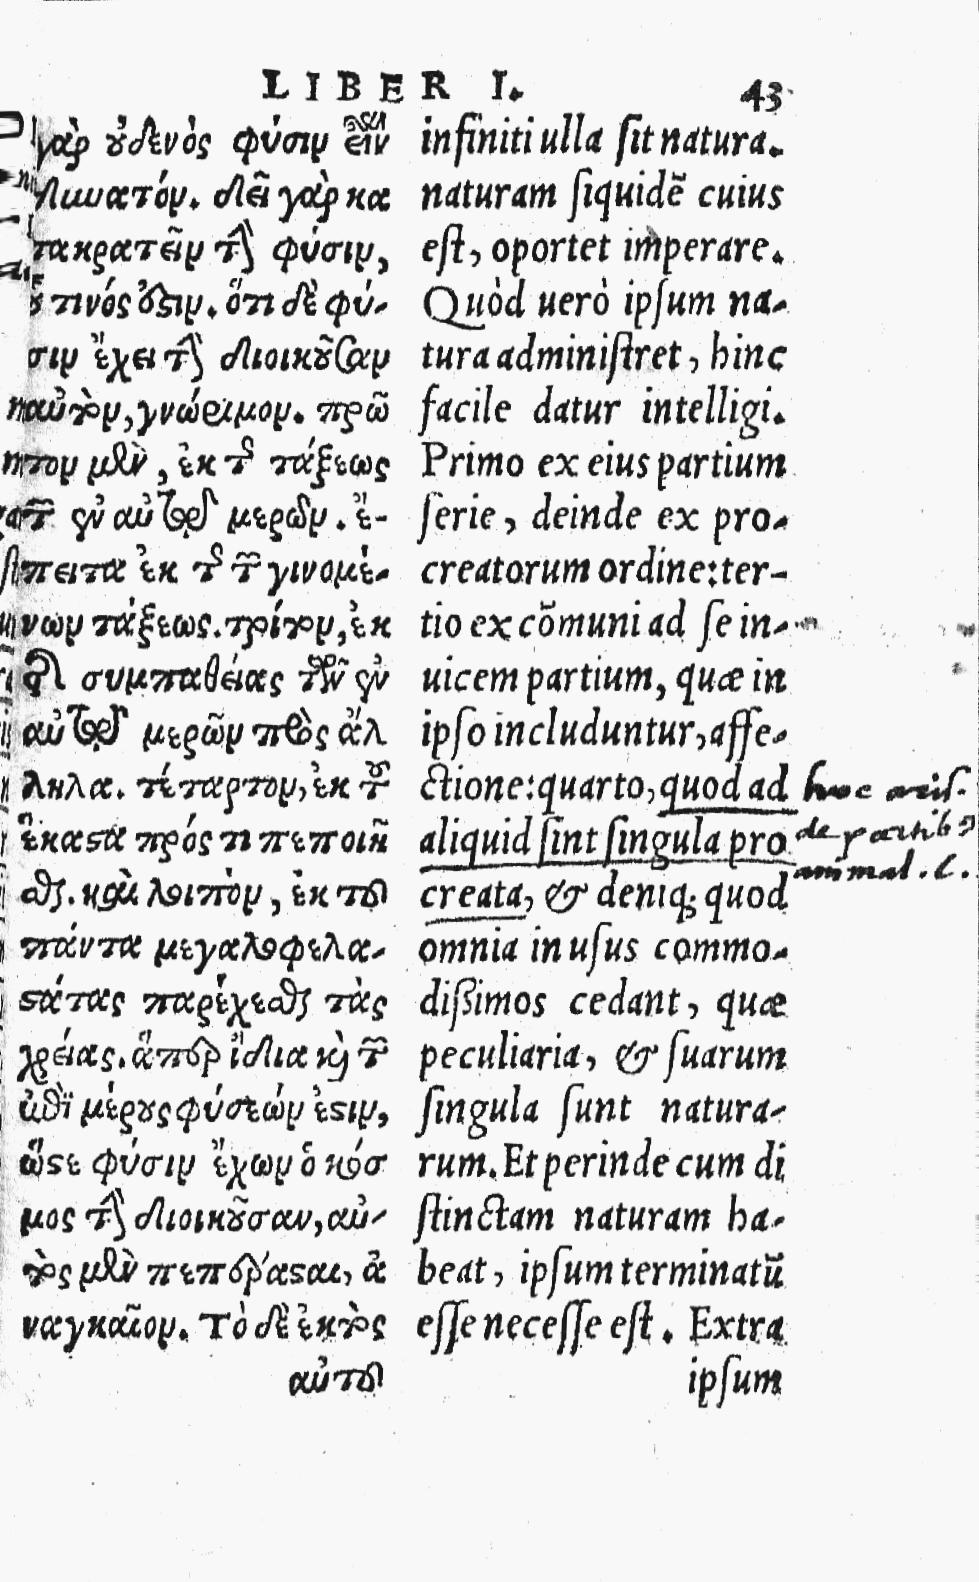 LIBER I.
43
γὰρ οὐδενὸς φύσιν εἶν
δυνατόν. δεῖ γὰρ κα
τακρατεῖν τὴν φύσιν,
οὗ τινός ὅστιν. ὅτι δὲ φύ-
σιν ἔχει τὴν διοικοῦσαν
αὐτὸν, γνώριμον. πρῶ
τον μὲν, ἐκ τῆς τάξεως
τῶν ἐν αὐτῷ μερῶν. ἔ-
πειτα ἐκ τῆς τῶν γινομέ-
νων τάξεως. τρίτον, ἐκ
τῆς συμπαθείας τῶν ἐν
αὐτῷ μερῶν πρὸς ἄλ
ληλα. τέταρτον, ἐκ τοῦ
ἕκαστα πρός τι πεποιῆ
σθαι. καὶ λοιπὸν, ἐκ τοῦ
πάντα μεγαλοφελα-
στάτας παρέχεσθαι τὰς
χρείας. ἅπερ ἴδια καὶ τῶν
ἐπὶ μέρους φύσεών ἐστιν,
ὥστε φύσιν ἔχων ὁ κόσ
μος τὴν διοικοῦσαν, αὐ-
τὸς μὲν πεπέρασται, ἀ
ναγκαῖον. Τὸ δὲ ἐκτὸς
αὐτοῦ
infiniti ulla ſit natura.
naturam ſiquidē cuius
eſt, oportet imperare.
Quòd uerò ipſum na-
tura adminiſtret, hinc
facile datur intelligi.
Primo ex eius partium
ſerie, deinde ex pro-
creatorum ordine: ter-
tio ex cōmuni ad ſe in-
uicem partium, quæ in
ipſo includuntur, affe-
ctione: quarto, quod ad
aliquid ſint ſingula pro
creata, & deniq; quod
omnia in uſus commo-
dißimos cedant, quæ
peculiaria, & ſuarum
ſingula ſunt natura-
rum. Et perinde cum di
ſtinctam naturam ha-
beat, ipſum terminatū
eſſe neceſſe eſt. Extra
ipſum
hoc arist.
de partibꝰ
animal. l.